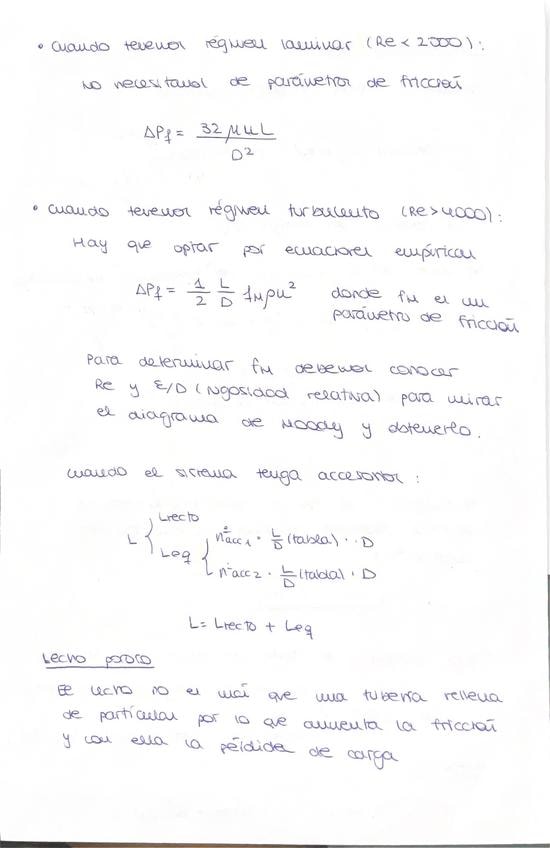 • Cuando tenemos régimen laminar (Re < 2000):
No necesitamos de parámetros de fricción
ΔPf = 32 μ u L / D²
• Cuando tenemos régimen turbulento (Re > 4000):
Hay que optar por ecuaciones empíricas
ΔPf = 1/2 L/D fM ρu² donde fM es un
parámetro de fricción
Para determinar fM debemos conocer
Re y ε/D (rugosidad relativa) para mirar
el diagrama de Moody y obtenerlo.
Cuando el sistema tenga accesorios:
Lrecto
L { Leq { nº acc 1 · L/D (tabla) · · D
nº acc 2 · L/D (tabla) · D
L = Lrecto + Leq
Lecho poroso
El lecho no es más que una tubería rellena
de partículas por lo que aumenta la fricción
y con ella la pérdida de carga